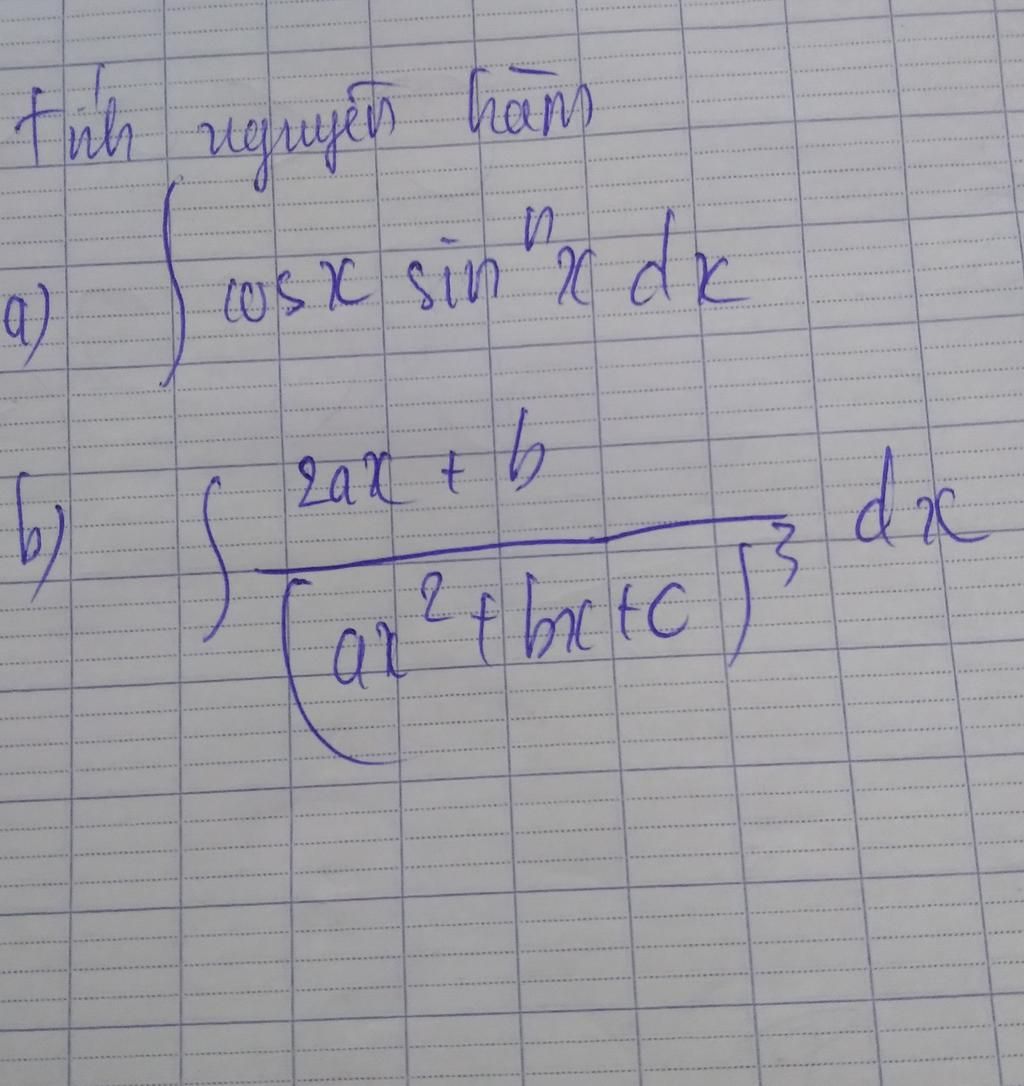 tính nguyên hàm
a) ∫ cosx sinⁿx dx
b) ∫ (2ax + b)/(ax² + bx + c)³ dx